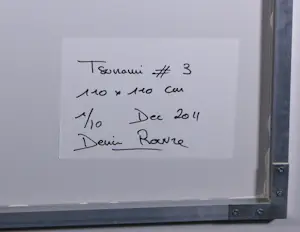 Tsunami # 3
110 x 110 cm
1/10 Dec 2011
Denis Rouvre